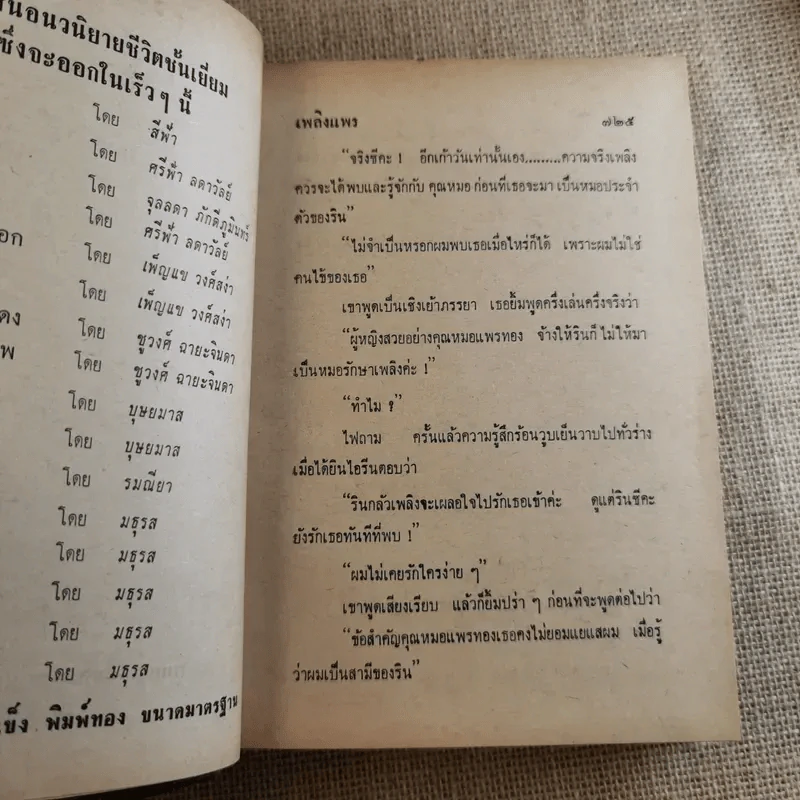 นอนวนิยายชีวิตชั้นเยี่ยม
ซึ่งจะออกในเร็วๆ นี้
โดย สีฟ้า
โดย ศรีฟ้า ลดาวัลย์
โดย จุลลดา ภักดีภูมินทร์
โดย ศรีฟ้า ลดาวัลย์
อก โดย เพ็ญแข วงศ์สง่า
โดย เพ็ญแข วงศ์สง่า
ดง โดย ชูวงศ์ ฉายะจินดา
พ โดย ชูวงศ์ ฉายะจินดา
โดย บุษยมาส
โดย บุษยมาส
โดย รมณียา
โดย มธุรส
โดย มธุรส
โดย มธุรส
โดย มธุรส
โดย มธุรส
แข็ง พิมพ์ทอง ขนาดมาตรฐาน
เพลิงแพร ๗๒๕
“จริงซีคะ ! อีกเก้าวันเท่านั้นเอง.........ความจริงเพลิง
ควรจะได้พบและรู้จักกับ คุณหมอ ก่อนที่เธอจะมา เป็นหมอประจำ
ตัวของริน”
“ไม่จำเป็นหรอกผมพบเธอเมื่อไหร่ก็ได้ เพราะผมไม่ใช่
คนไข้ของเธอ”
เขาพูดเป็นเชิงเย้าภรรยา เธอยิ้มพูดครึ่งเล่นครึ่งจริงว่า
“ผู้หญิงสวยอย่างคุณหมอแพรทอง จ้างให้รินก็ ไม่ให้มา
เป็นหมอรักษาเพลิงค่ะ !”
“ทำไม ?”
ไฟถาม ครั้นแล้วความรู้สึกร้อนวูบเย็นวาบไปทั่วร่าง
เมื่อได้ยินไอรีนตอบว่า
“รินกลัวเพลิงจะเผลอใจไปรักเธอเข้าค่ะ ดูแต่รินซีคะ
ยังรักเธอทันทีที่พบ !”
“ผมไม่เคยรักใครง่าย ๆ”
เขาพูดเสียงเรียบ แล้วก็ยิ้มปร่า ๆ ก่อนที่จะพูดต่อไปว่า
“ข้อสำคัญคุณหมอแพรทองเธอคงไม่ยอมแยแสผม เมื่อรู้
ว่าผมเป็นสามีของริน”